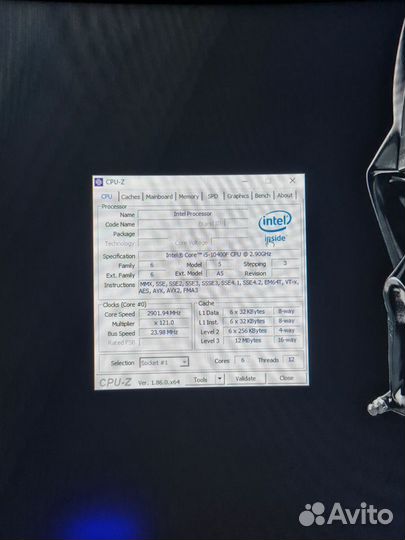 CPU-Z
CPU Caches Mainboard Memory SPD Graphics Bench About
Processor
Name Intel Processor
Code Name Brand ID
Package
Technology Core Voltage
intel
inside
Specification Intel® Core™ i5-10400F CPU @ 2.90GHz
Family 6 Model 5 Stepping 3
Ext. Family 6 Ext. Model A5 Revision
Instructions MMX, SSE, SSE2, SSE3, SSSE3, SSE4.1, SSE4.2, EM64T, VT-x,
AES, AVX, AVX2, FMA3
Clocks (Core #0)
Core Speed 2901.94 MHz
Multiplier x 121.0
Bus Speed 23.98 MHz
Rated FSB
Cache
L1 Data 6 x 32 KBytes 8-way
L1 Inst. 6 x 32 KBytes 8-way
Level 2 6 x 256 KBytes 4-way
Level 3 12 MBytes 16-way
Selection Socket #1 Cores 6 Threads 12
CPU-Z Ver. 1.86.0.x64 Tools Validate Close
Avito